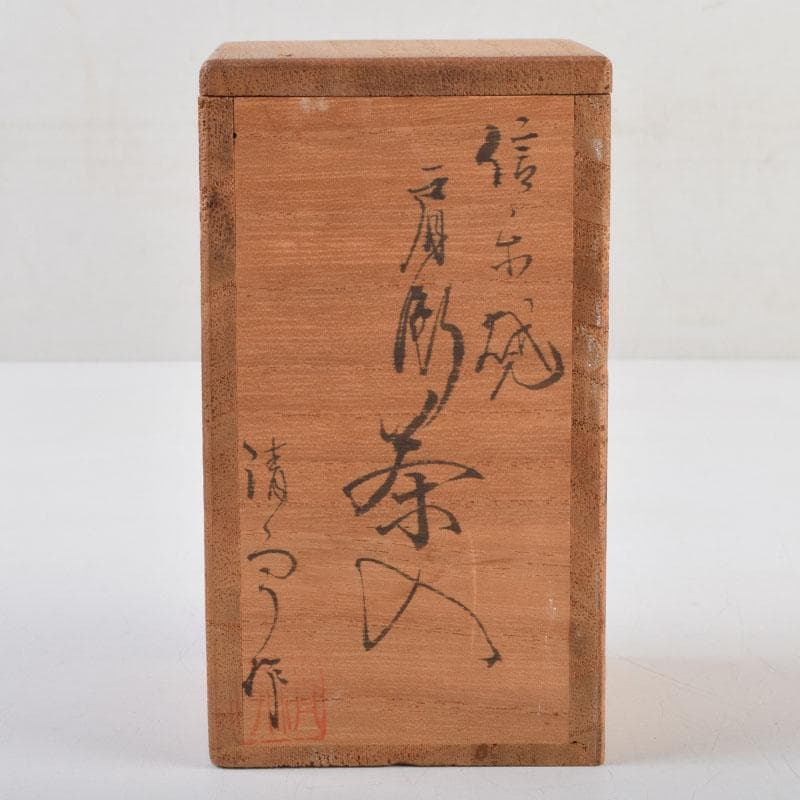 信楽焼
肩衝茶入
清 作